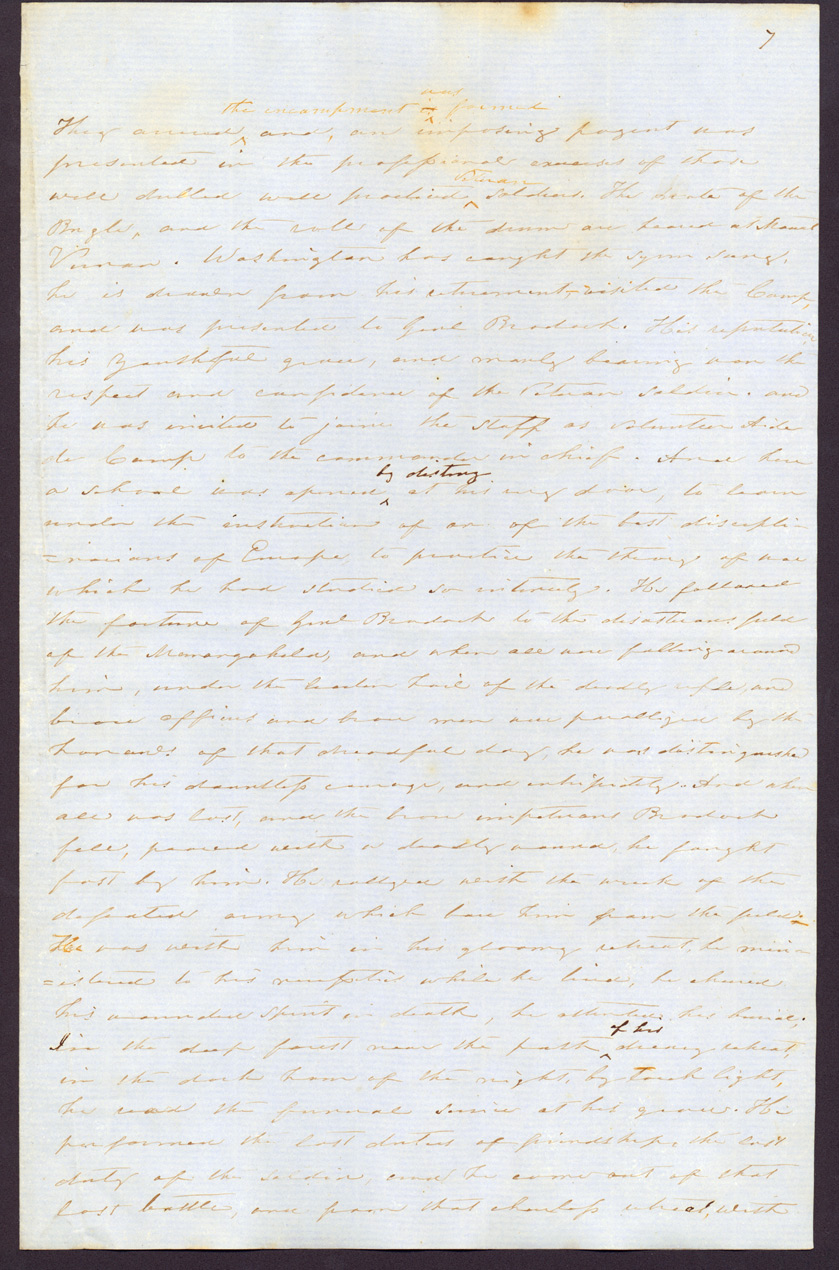 7
the incampment was formed
They arrived, and, an imposing pagent was
presented in the proffessional exercises of those
well drilled well practiced veteran soldiers. The note of the
Bugle, and the roll of the drum are heard at Mount
Vernon. Washington has caught the syren song,
he is drawn from his retirement, visited the Camp,
and was presented to Genl Bradock. His reputation
his youthful grace, and manly bearing won the
respect and confidence of the veteran soldier. and
he was invited to join the staff as volunteer Aide
de Camp to the commander in chief. And here
by destiny
a school was opened at his very door, to learn
under the instructions of one of the best discipli-
=narians of Europe to practice the theory of war
which he had studied so intensely. He followed
the fortune of Genl Bradock to the disasterous field
of the Monongahela, and when all were falling around
him, under the leaden hail of the deadly rifle, and
brave officers and brave men were parallized by the
horrors of that dreadful day, he was distinguished
for his dauntless courage, and intripidity. And when
all was lost, and the brave impetuous Bradock
fell, pierced with a deadly wound, he fought
fast by him. He rallyed with the wreck of the
defeated army which bore him from the field.
He was with him in his gloomy retreat, he min-
=istered to his necessities while he lived, he cheered
his wounded spirit in death, he attended his burial,
of his
In the deep forest near the path dreary retreat,
in the dark hour of the night, by torch light,
he read the funeral service at his grave. He
performed the last duties of friendship, the last
duty of the soldier, and he came out of that
lost battle, and from that cheerless retreat, with